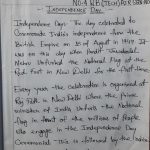 INDEPENDENCE DAY
Independence Day - The day celebrated to
Commemorate India's independence from the
British Empire on 15 of August in 1947. It
was on this day when Pandit Jawaharlal
Nehru Unfurled the National flag at the
Red Fort in New Delhi for the first time.
Every year the celebration is organised at
Red Fort in New Delhi where the prime
minister of India Unfurls the National
Flag in front of the millions of people
who engage in the Independence Day
Ceremonial. This is followed by the